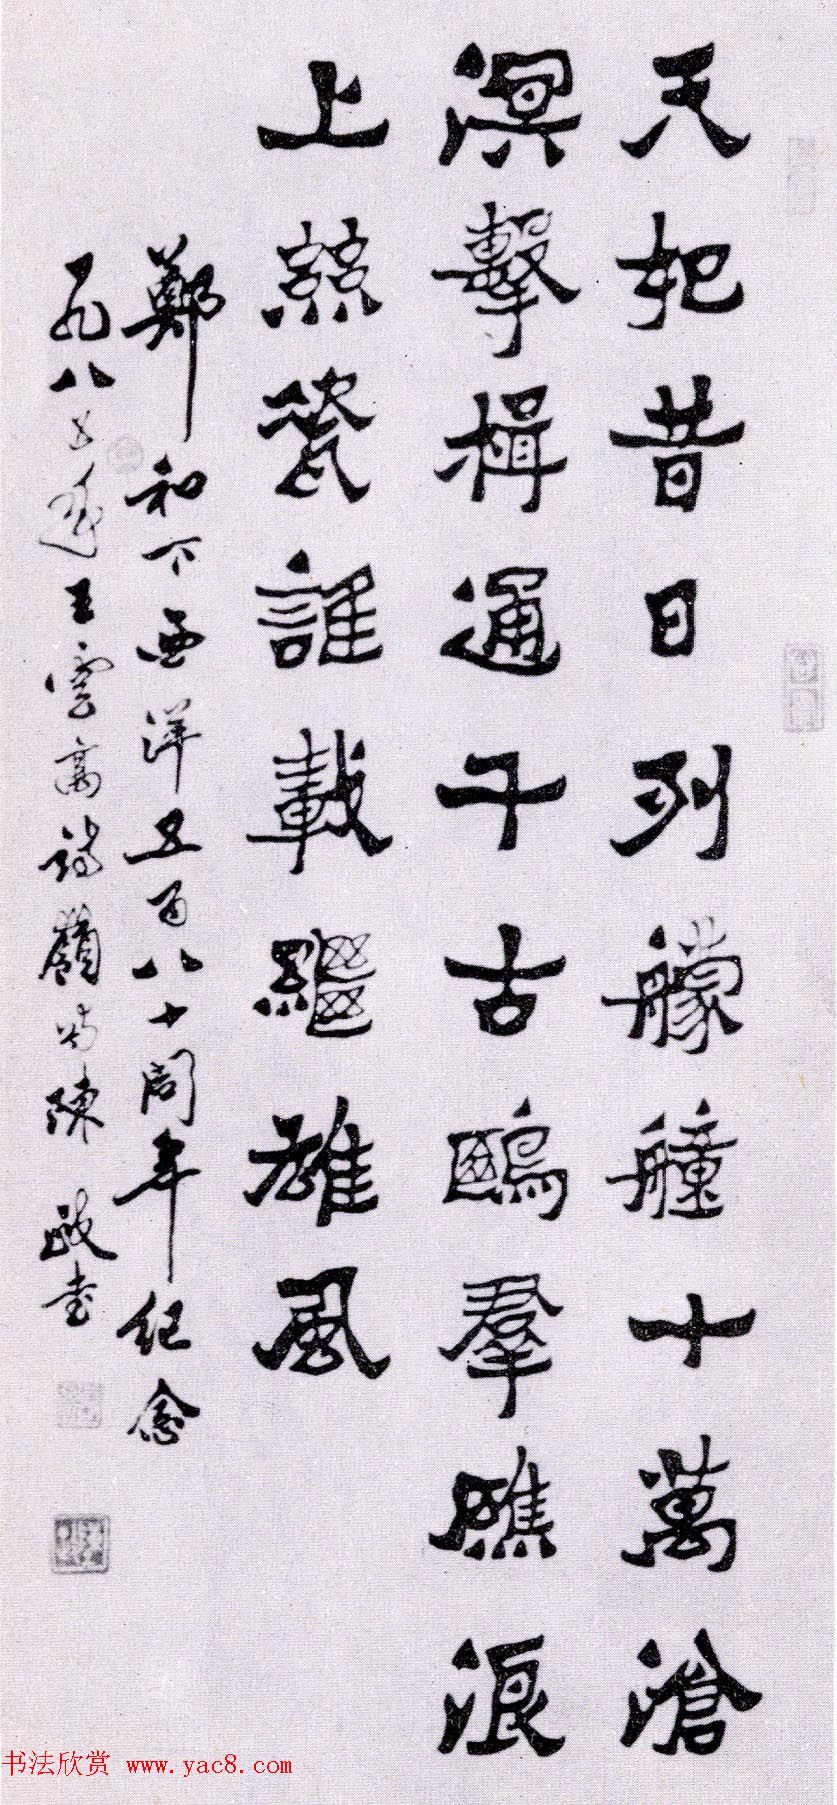 天妃昔日列艨艟十萬滄
溟擊楫通千古鷗羣礁浪
上絲瓷誰載繼雄風
鄭和下西洋五百八十周年纪念
一九八五年王雲高詩嶺南陳政书
书法欣赏 www.yac8.com